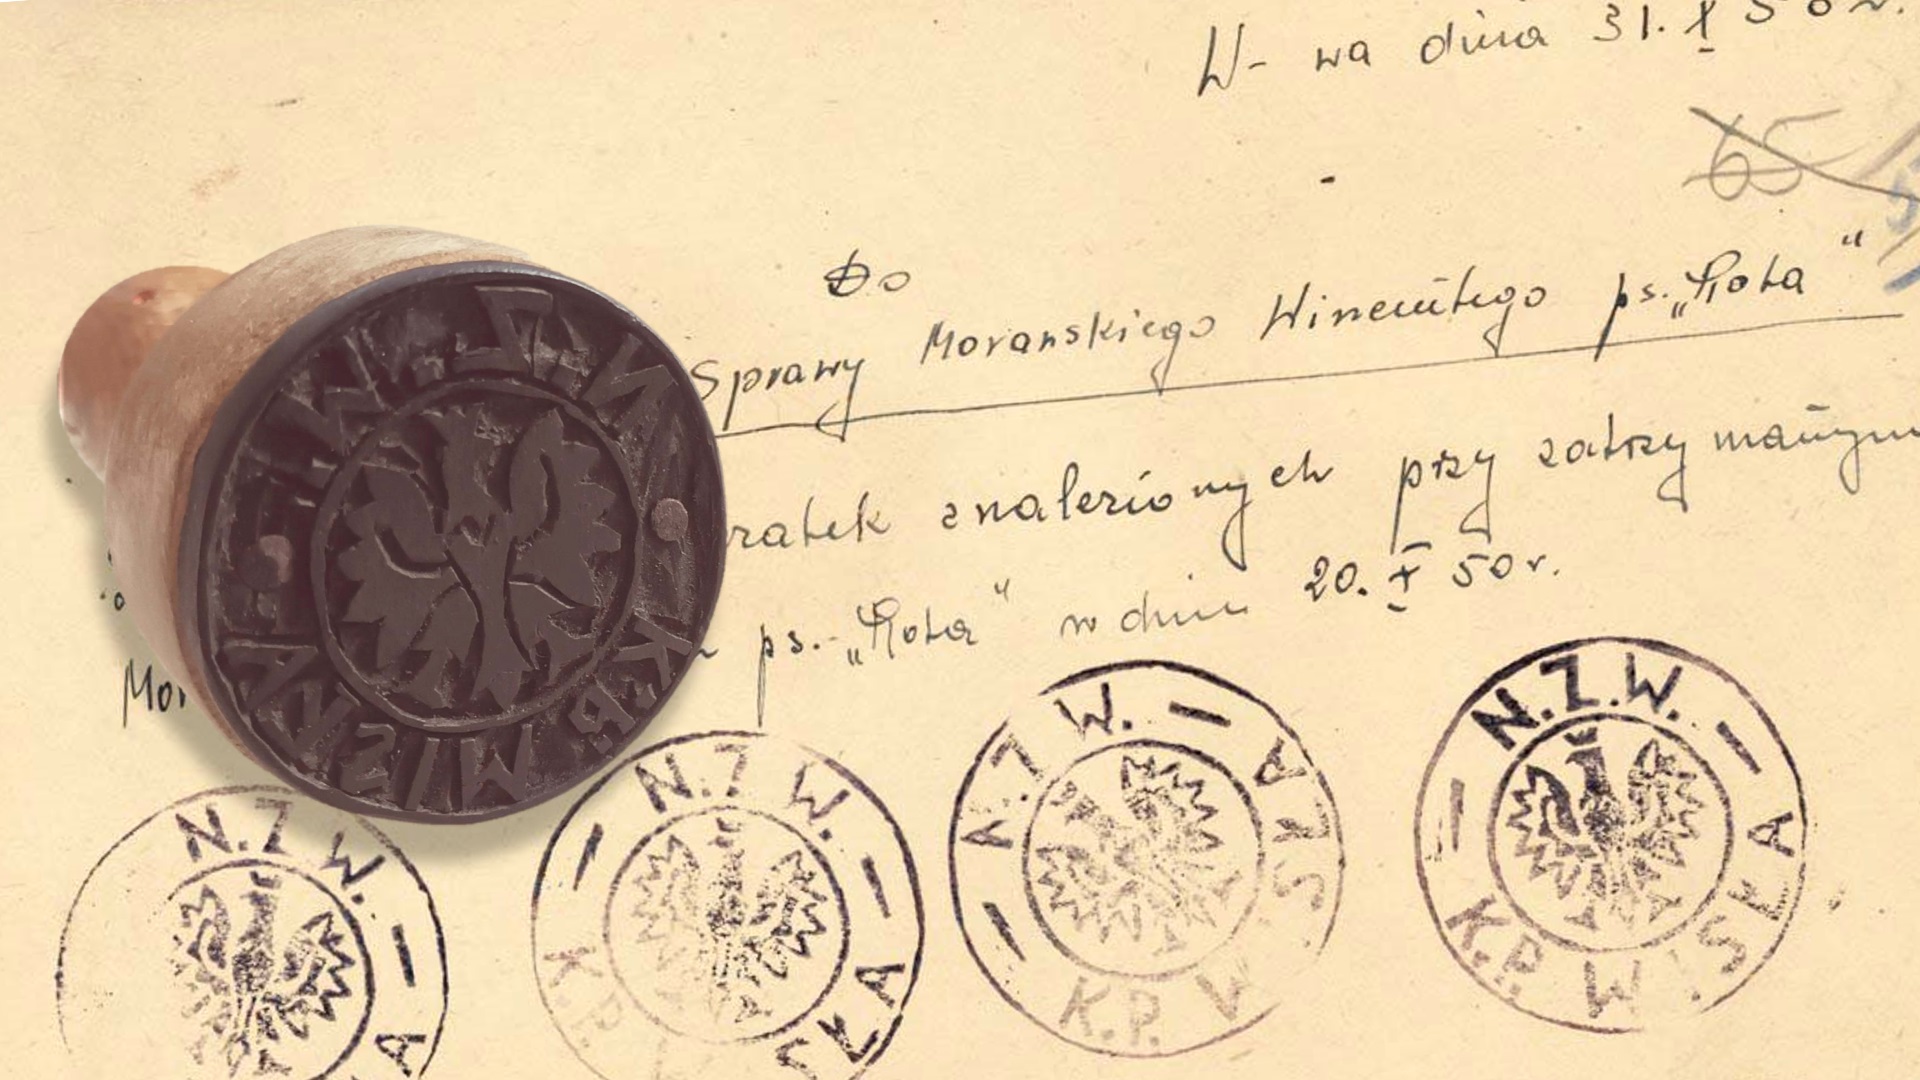 W-wa dnia 31. X 50 r.
65
Do
Sprawy Morawskiego Wincentego ps. „Rota"
znalezionych przy zatrzymanym
ps. „Rota" w dniu 20. X 50 r.
N.Z.W. – K.P. WISŁA
N.Z.W. – A
N.Z.W. – K.P. SŁA –
N.Z.W. – SŁA K.P. W –
N.Z.W. – K.P. WISŁA –